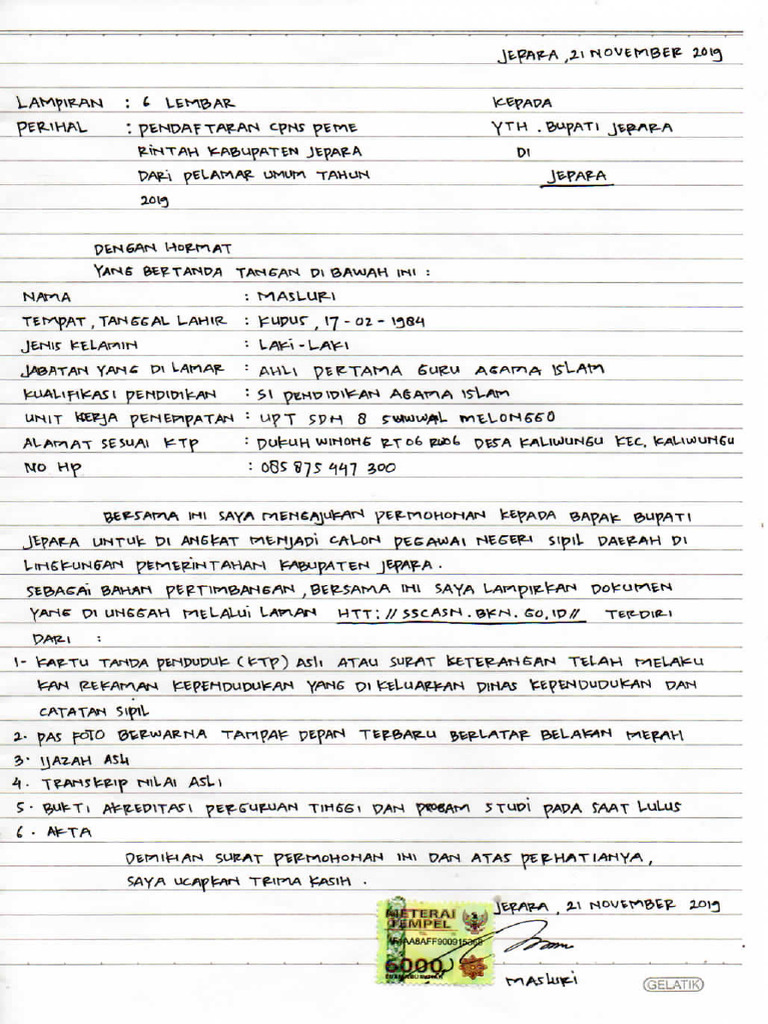 JEPARA, 21 NOVEMBER 2019
LAMPIRAN : 6 LEMBAR
KEPADA
PERIHAL : PENDAFTARAN CPNS PEME
YTH. BUPATI JEPARA
RINTAH KABUPATEN JEPARA
DI
DARI PELAMAR UMUM TAHUN
JEPARA
2019
DENGAN HORMAT
YANG BERTANDA TANGAN DI BAWAH INI :
NAMA : MASLURI
TEMPAT, TANGGAL LAHIR : KUDUS, 17-02-1984
JENIS KELAMIN : LAKI-LAKI
JABATAN YANG DI LAMAR : AHLI PERTAMA GURU AGAMA ISLAM
KUALIFIKASI PENDIDIKAN : SI PENDIDIKAN AGAMA ISLAM
UNIT KERJA PENEMPATAN : UPT SDN 8 MELONGGO
ALAMAT SESUAI KTP : DUKUH WINONG RT 06 RW 06 DESA KALIWUNGU KEC. KALIWUNGU
NO HP : 085 875 447 300
BERSAMA INI SAYA MENGAJUKAN PERMOHONAN KEPADA BAPAK BUPATI
JEPARA UNTUK DI ANGKAT MENJADI CALON PEGAWAI NEGERI SIPIL DAERAH DI
LINGKUNGAN PEMERINTAHAN KABUPATEN JEPARA.
SEBAGAI BAHAN PERTIMBANGAN, BERSAMA INI SAYA LAMPIRKAN DOKUMEN
YANG DI UNGGAH MELALUI LAMAN HTT://SSCASN.BKN.GO.ID// TERDIRI
DARI :
1- KARTU TANDA PENDUDUK (KTP) ASLI ATAU SURAT KETERANGAN TELAH MELAKU
KAN REKAMAN KEPENDUDUKAN YANG DI KELUARKAN DINAS KEPENDUDUKAN DAN
CATATAN SIPIL
2. PAS FOTO BERWARNA TAMPAK DEPAN TERBARU BERLATAR BELAKAN MERAH
3. IJAZAH ASLI
4. TRANSKRIP NILAI ASLI
5. BUKTI AKREDITASI PERGURUAN TINGGI DAN STUDI PADA SAAT LULUS
6. AKTA
DEMIKIAN SURAT PERMOHONAN INI DAN ATAS PERHATIANYA,
SAYA UCAPKAN TRIMA KASIH.
JEPARA, 21 NOVEMBER 2019
METERAI
TEMPEL
6000
MASLURI
GELATIK